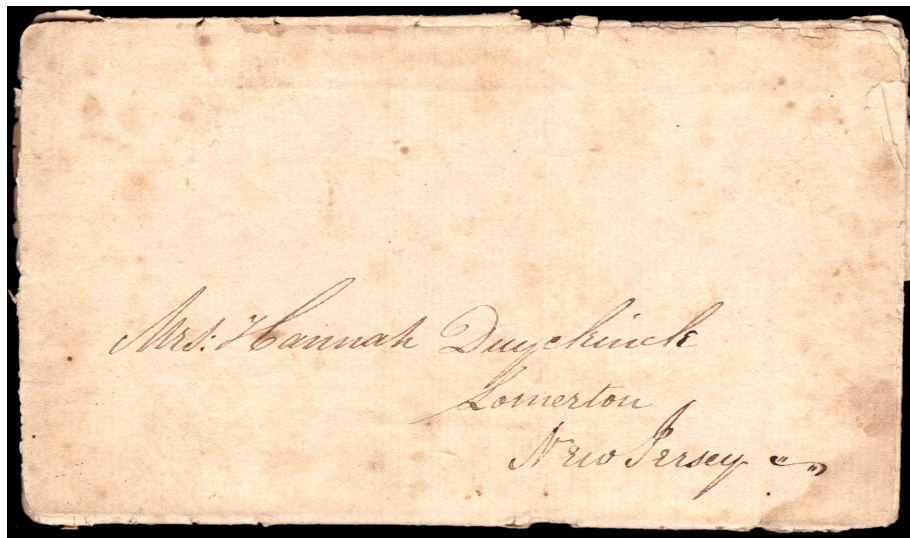 Mrs: Hannah Duyckinck
Somerton
New Jersey